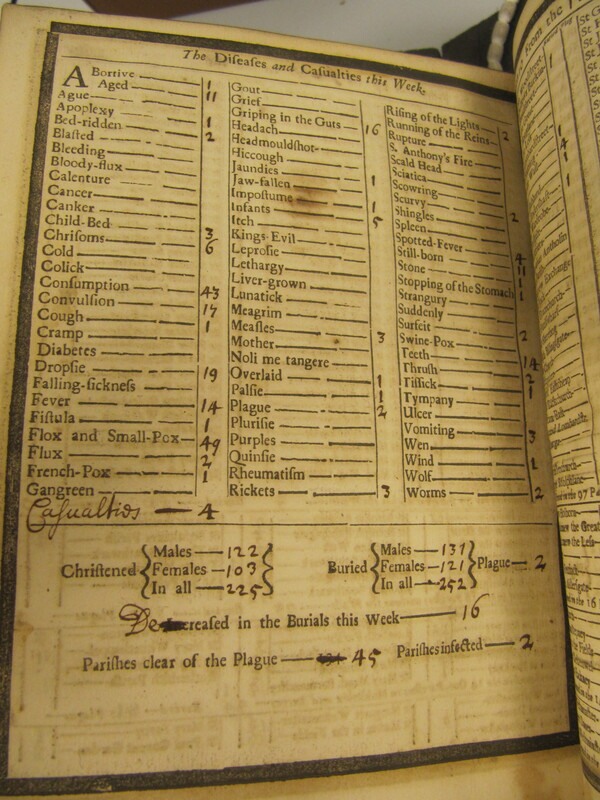 The Diſeaſes and Caſualties this Week.
Abortive — 1
Aged — 11
Ague
Apoplexy
Bed-ridden — 1
Blaſted — 2
Bleeding
Bloody-flux
Calenture
Cancer
Canker
Child-Bed — 3
Chriſoms — 6
Cold
Colick
Conſumption — 43
Convulſion — 17
Cough — 1
Cramp
Diabetes
Dropſie — 19
Falling-ſickneſs
Fever — 14
Fiſtula — 1
Flox and Small-Pox — 49
Flux — 2
French-Pox — 1
Gangreen
Caſualties — 4
Gout
Grief
Griping in the Guts — 16
Headach
Headmouldſhot
Hiccough
Jaundies
Jaw-fallen — 1
Impoſtume — 1
Infants — 5
Itch
Kings-Evil
Leproſie
Lethargy
Liver-grown
Lunatick
Meagrim
Meaſles — 3
Mother
Noli me tangere
Overlaid — 1
Palſie — 1
Plague — 2
Pluriſie
Purples
Quinſie
Rheumatiſm
Rickets — 3
Riſing of the Lights — 2
Running of the Reins
Rupture
S. Anthony's Fire
Scald Head
Sciatica
Scowring
Scurvy — 2
Shingles
Spleen
Spotted-Fever — 4
Still-born — 11
Stone — 1
Stopping of the Stomach — 1
Strangury
Suddenly
Surfeit — 2
Swine-Pox
Teeth — 14
Thruſh — 2
Tiſſick — 1
Tympany
Ulcer
Vomiting — 3
Wen
Wind — 1
Wolf
Worms — 2
Chriſtened
Males — 122
Females — 103
In all — 225
Buried
Males — 131
Females — 121
In all — 252
Plague — 2
Decreaſed in the Burials this Week — 16
Pariſhes clear of the Plague — 45 Pariſhes infected — 2
From the